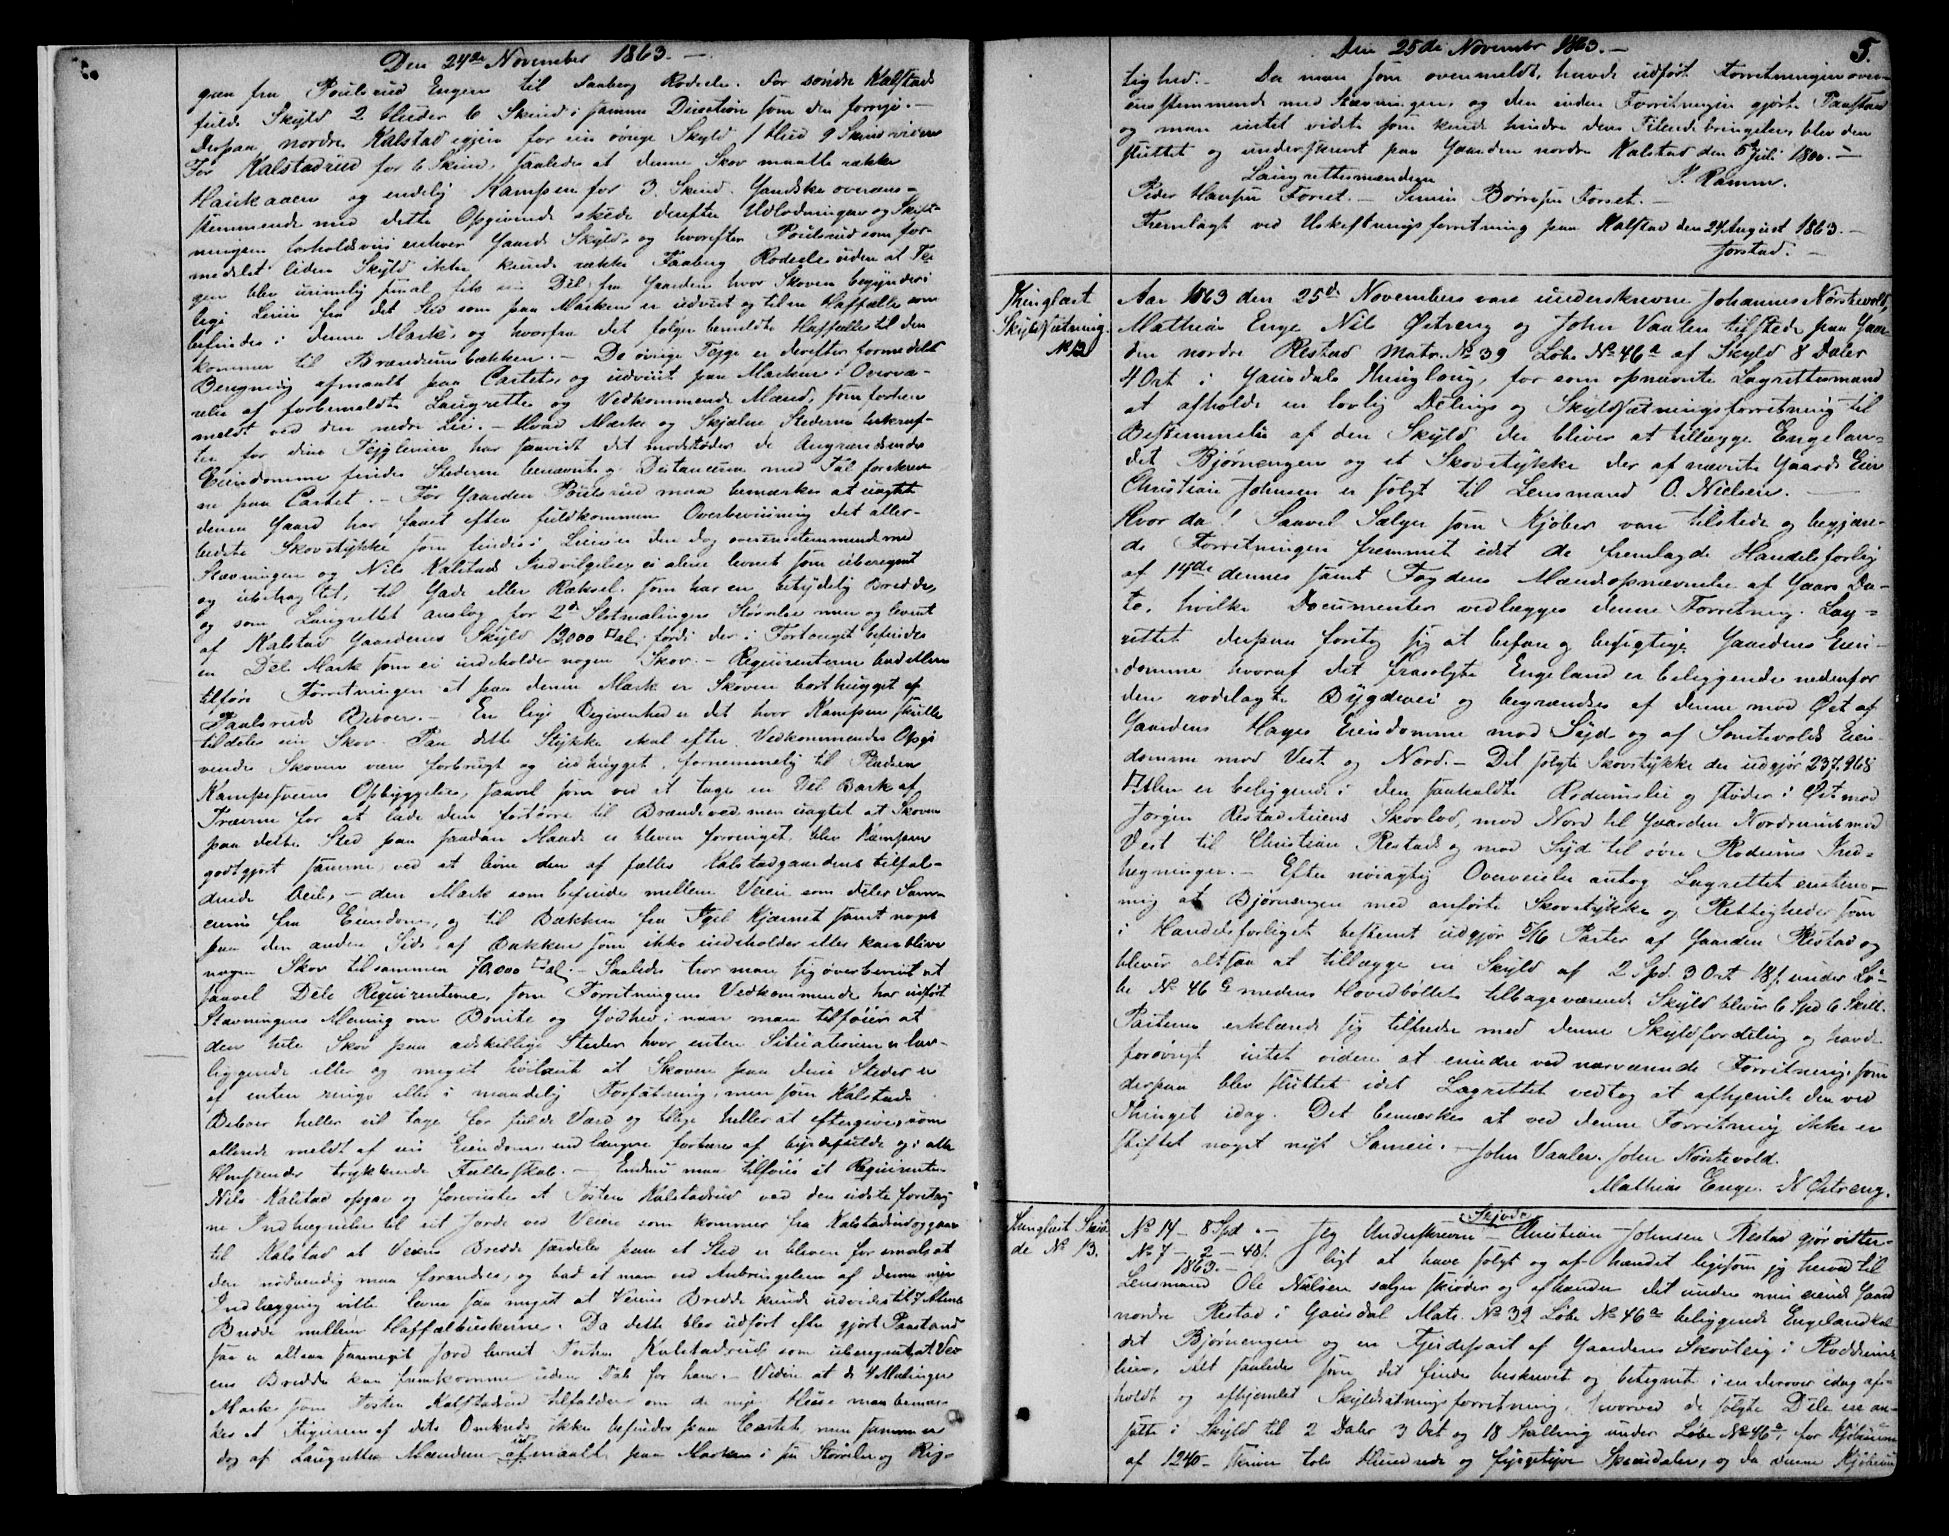 Den 24de November 1863. —
gaa fra Poulsrud Engen til Faaberg Rodele. For søndre Kalstads
fulde Skyld 2 Huder 6 Skind i samme Direction som den forrige. —
Derpaa nordre Kalstad igjen for sin øvrige Skyld 1 Hud 9 Skind videre
For Kalstadrud for 6 Skind, saaledes at denne Skov maatte række
Haukaaen og endelig Kampen for 3 Skind. Gandske overens-
stemmende med dette Opgivende skede derefter Udlodningen og Skift-
ningen forholdsvis enhver Gaards Skyld, og hvorefter Poulsrud som for-
medelst liden Skyld ikke kunde række Faaberg Rodele uden at Tei-
gen blev urimelig smal fik sin Deel fra Gaarden hvor Skoven begynder i
lige Linie fra det Sted som paa Marken er udvist og til en Haffælle som
befindes i denne Mark, og hvorfra det følger bemeldte Haffælle til den
kommer til Brandrumsbækken. — De øvrige Teige er derefter formedelst
Beregning afmaalt paa Cartet, og udviist paa Marken i Overvæ-
relse af forbemeldte Laugrette og Vedkommende Mænd, som forhen
meldt ved den nedre Lie. — Hvad Mærke og Skjælne Stederne bekræf-
ter for disse Teiglinier har saavidt det modstøder de Angrændsende
Eiendomme findes Stederne benævnte og Distancerne med Tal forskrev-
ne paa Cartet. — For Gaarden Poulsrud maa bemærkes at uagtet
denne Gaard har faaet efter fuldkommen Overbeviisning det aller-
bedste Skovstykke som findes i Lien er den dog overensstemmende med
Stævningen og Nils Kalstads Indvilgelse, ei alene levnet som uberegnet
og ubetragtet, til Gade eller Ræksel som har en betydelig Bredde,
og som Laugrettet anslog for 2de Setmalingers Størrelse men og levnet
af Kalstad Gaardenes Skyld 12000 □ al. fordi der i Fortouget befindes
en Deel Mark som ei indeholder nogen Skov. — Requirenterne bad ellers
tilføre Forretningen at paa denne Mark er Skoven borthugget af
Paulsruds Beboer. — En lige Begivenhed er det hvor Kampen skulle
tildeles sin Skov. Paa dette Stykke skal efter Vedkommendes Opgi-
vende Skoven være forbrugt og udhugget, fornemmelig til Pladsen
Kampesveens Opbyggelse, saavel som ved at tage en Del Bark af
Træerne for at lade dem fortørre til Brændeved men uagtet at Skoven
paa dette Sted paa saadan Maade er bleven forringet blev Kampen
godtgjort samme, ved at levne den af fælles Kalstadgaardens tilfal-
dende Deel, — den Mark som befindes mellem Veien som deler Sam-
eiens fra Eiendom, og til Bækken fra Fjel Kjærnet samt noget
paa den anden Side af Bækken som ikke indeholder eller kan blive
nogen Skov tilsammen 70,000 □ al. — Saaledes tror man sig overbeviist at
saavel Dele Requirenterne, som Forretningens Vedkommende har udført
Stævningens Mening om Bonite og Godhed; naar man tilføier at
den hele Skov paa adskillige Steder hvor enten Situationen er lav-
liggende eller og meget høilænt at Skoven paa disse Steder er
af enten ringe eller i maadelig Forfatning, men som Kalstads
Beboer heller vil tage for fulde Værd og tillige heller at eftergive, som
allerede meldt af sin Eiendom, end længere forbære af byrdefulde og i alle
Henseender trykkende Fællesskab. — Endnu maa tilføies at Requirenten
Nils Kalstad opgav og foreviiste at Posten Kalstadrud ved den sidste foretag-
ne Indhegnelse til sit Jorde ved Veien som kommer fra Kalstadrud og gaar
til Kalstad at Veiens Bredde særdeles paa et Sted er bleven for smal at
den nødvendig maa forandres, og bad at man ved Anbringelsen af denne nye
Indhægning ville levne saa meget at Veiens Bredde kunde udvides til 7 Alens
Bredde mellem Haffælbuskerne. Da dette blev udført efter gjort Paastand
saa er altsaa saameget Jord levnet Posten Kalstadrud som uberegnet at Vei-
ens Bredde kan fremkomme uden Tab for ham. — Videre at de 4 Malinger
Mark som Posten Kalstadrud tilfalder om de nye Huse man bemær-
kes at Figuren af dets Omkreds ikke befindes paa Cartet, men samme er
dog af Laugrettes Mændene udafmaalt paa Marken i sin Størrelse og Rig-
Den 25de November 1863. —
5.
tighed. — Da man som ovenmeldt, havde udført Forretningen over-
ensstemmende med Stævningen, og den inden Forretningen gjorte Paastand
og man intet vidste som kunde hindre dens Tilendebringelse, blev den
sluttet og underskrevet paa Gaarden nordre Kalstad den 5te Juli 1800. —
Laugrettesmændene
P. Ramm.
Peder Hansen Forset. — Simen Børresen Forset. —
Fremlagt ved Udskiftningsforretning paa Kalstad den 24 August 1863. —
Jorstad. —
Thinglæst
Skyldsætning.
No 12
Aar 1863 den 25de November vare underskrevne Johannes Nørstevold,
Mathias Enge, Nils Østreng og John Vaalen tilstede paa Gaar-
den nordre Restad Matr. No 39 Løbe No 46a af Skyld 8 Daler
4 Ort i Gausdals Thinglaug, for som opnævnte Lagrettesmænd
at afholde en lovlig Delings og Skyldsætningsforretning til
Bestemmelse af den Skyld der bliver at tillægge Engelan-
det Bjørnengen og et Skovstykke der af nævnte Gaards Eier
Christian Johnsen er solgt til Lensmand O. Nielsen. —
Hvor da! Saavel Sælger som Kjøber vare tilstede og begjære-
de Forretningen fremmet idet de fremlagde Handelsforlig
af 14de dennes samt Fogdens Mændsopnævnelse af Gaars Da-
to, hvilke Documenter vedlægges denne Forretning. Lag-
rettet derpaa foretog sig at befare og besigtige Gaardens Eien-
domme hvoraf det frasolgte Engeland er beliggende nedenfor
den rodelagte Bygdevei og begrændses af denne mod Øst af
Gaardens Hages Eiendomme mod Syd og af Sønstevolds Eien-
domme mod Vest og Nord. — Det solgte Skovstykke der udgjør 237,968
□ Alen er beliggende i den saakaldte Roduмslie og støder i Øst mod
Jørgen Restadsveens Skovlod, mod Nord til Gaarden Nordrum mod
Vest til Christian Restad og mod Syd til øvre Rodums Ind-
hegninger. — Efter nøiagtig Overveielse antog Lagrettet enstem-
mig at Bjørnengen med anførte Skovstykke og Rettigheder som
i Handelsforliget bestemt udgjør 5/16 Parter af Gaarden Restad og
bliver altsaa at tillægge en Skyld af 2 Spd. 3 Ort 18 s. under Lø-
be No 46c medens Hovedbøllets tilbageværende Skyld bliver 6 Spd 6 Skill.
Parterne erklærede sig tilfredse med denne Skyldfordeling og havde
forøvrigt intet videre at erindre ved nærværende Forretning, som
derpaa blev sluttet idet Lagrettet vedtog at afhjemle den ved
Thinget idag. Det bemærkes at ved denne Forretning ikke er
stiftet noget nyt Sameie. — John Vaalen. John Nørstevold.
Mathias Enge. N Østreng.
Thinglæst Skiø-
de No 13.
Skjøde
No 14 — 8 Spd. — Jeg Underskrevne Christian Johnsen Restad gjør vitter-
No 7 — 2 — 48 s. ligt at have solgt og afhændet ligesom jeg herved til
1863. —
Lensmand Ole Nielsen sælger skiøder og afhænder det under min eiende Gaard
nordre Restad i Gausdal Matr. No 39 Løbe No 46a beliggende Engeland kal-
det Bjørnengen og en Fjerdepart af Gaardens Skovteig i Roddums-
lien, alt saaledes som det findes beskrevet og betegnet i en derover idag af-
holdt og afhjemlet Skyldsætningsforretning, hvorved de solgte Dele er an-
satte i Skyld til 2 Daler 3 Ort og 18 Skilling under Løbe No 46c, for Kjøbesum
af 1240 — skriver tolv Hundrede og fyrgetyve Speciedaler, og da denne Kjøbesum